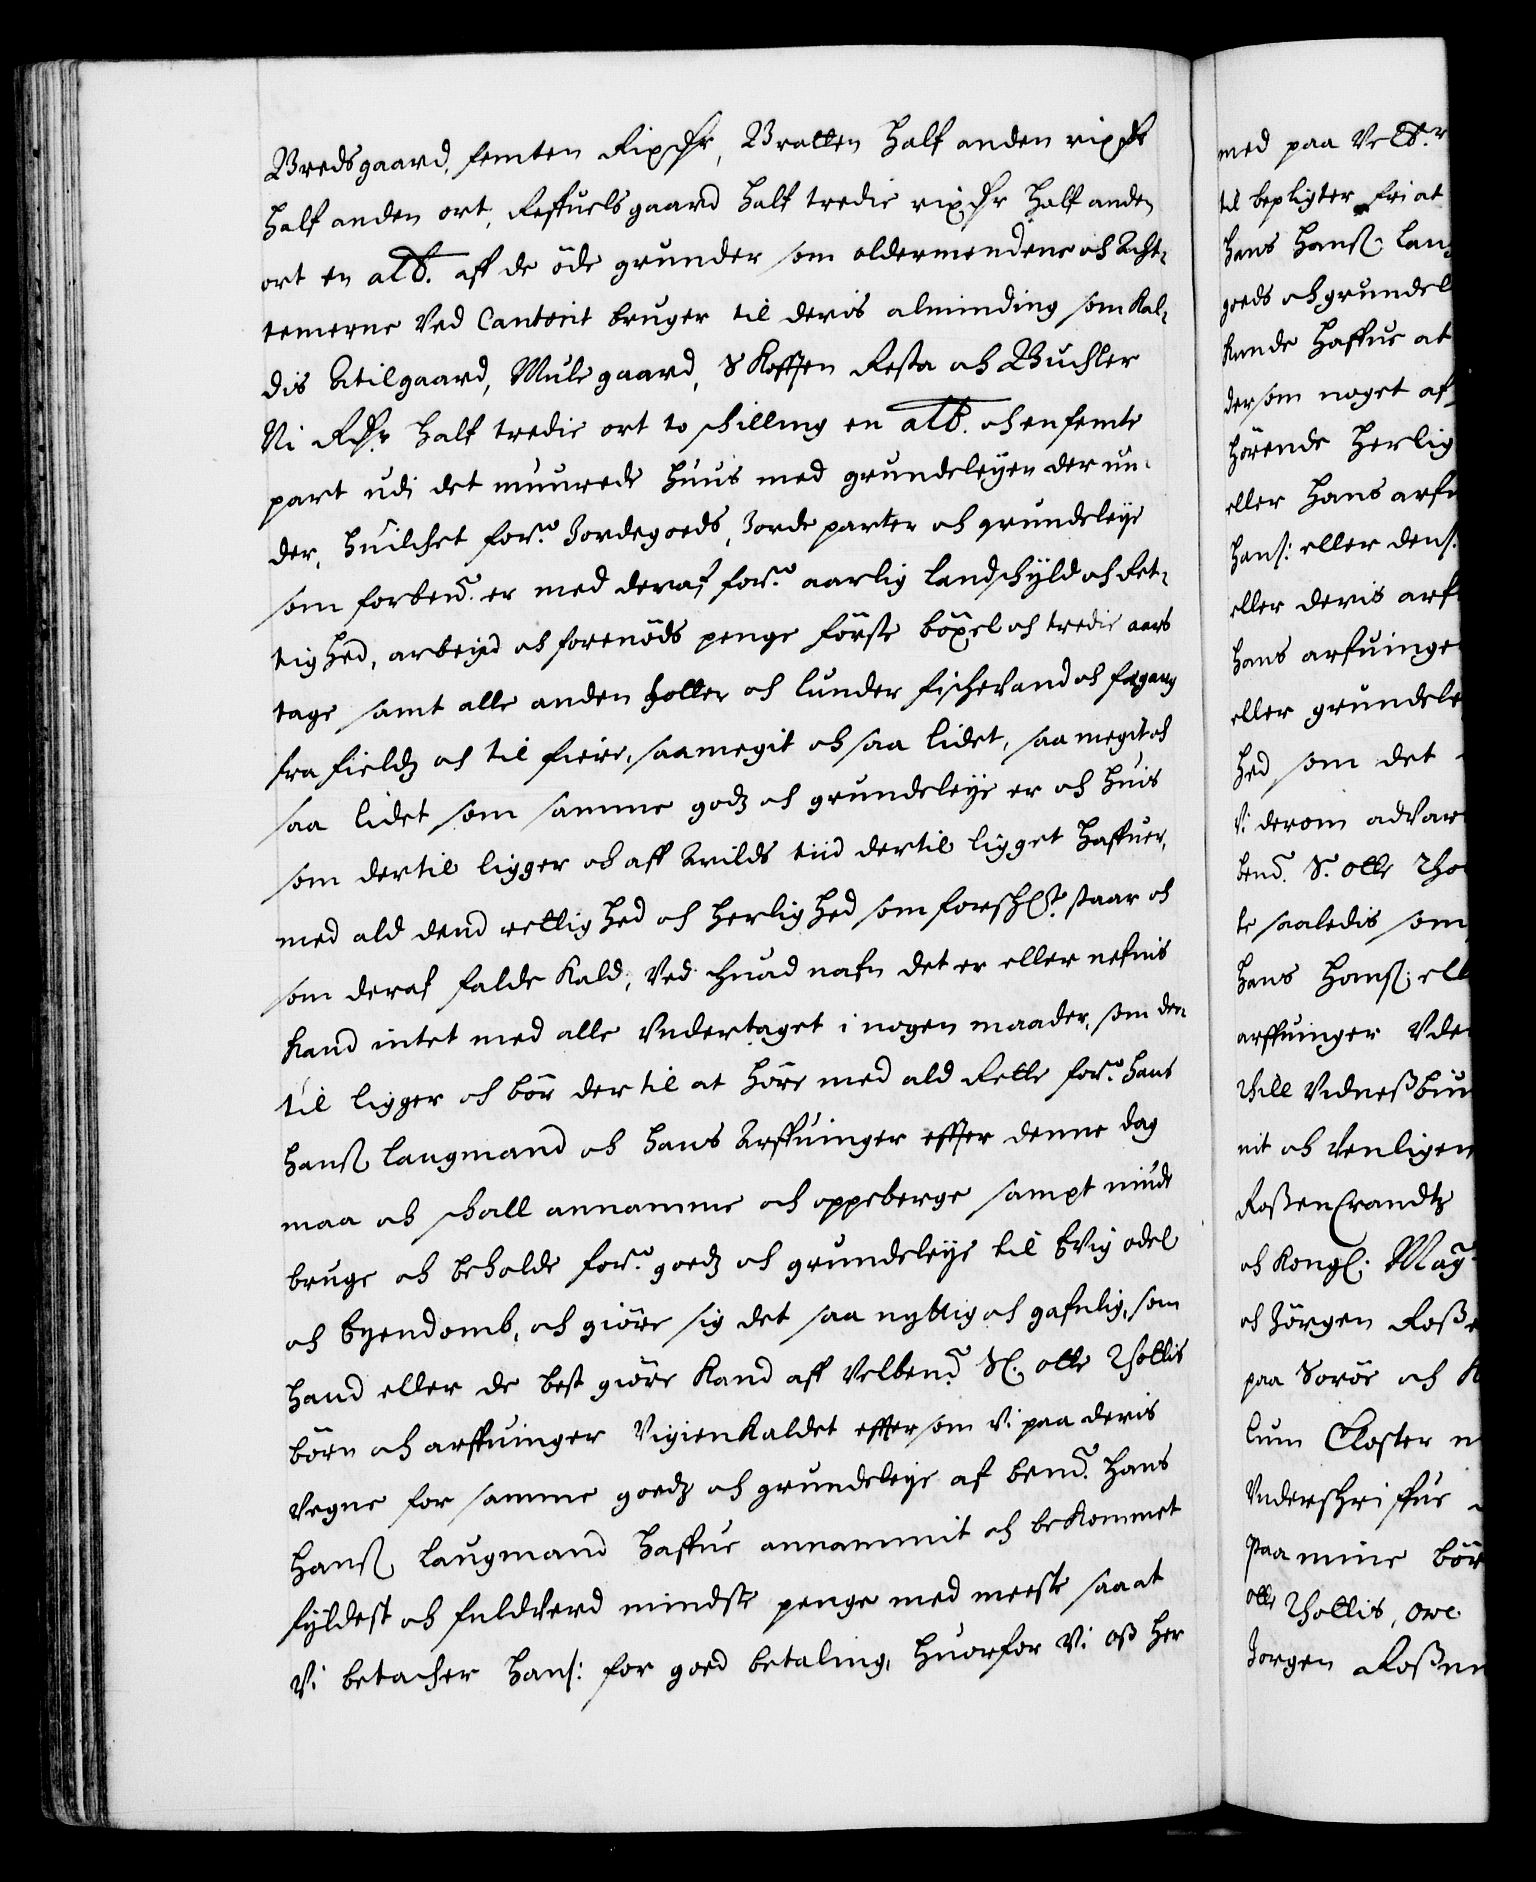 Bredsgaard, femten Rixdlr, Bratten half anden rixdlr
half anden ort, Refsuelsgaard half tredie rixdlr half anden
ort en alb. aff de öde grunder som oldermendene och Acht¬
temerne Ved Cantorit bruger til deris alminding som kal¬
dis Atilgaard, Mulegaard, Skoffen Resta och Buchler
Ni Rdlr half tredie ort to schilling en alb. och en femte
part udi det muurede huus med grundeleyen der un¬
der, huilchet forne Jordegoeds, Jorde parter och grundeleye
som forbend. er med deraf forne aarlig landschyld och Ret¬
tighed, arbeyd och forenöds penge förste böxel och tredie aars
tage samt alle anden holter och lunder fischevand och fægang
fra fieldz och til fiere, saamegit och saa lidet, saa megit och
saa lidet som samme godz och grundeleye er och huis
som dertil ligger och aff Arilds tiid dertil ligget haffuer,
med ald dend rettighed och herlighed som forschr. staar och
som deraf falde kald, Ved huad nafn det er eller nefnis
kand intet med alle Vndertaget i nogen maader, som der
til ligger och bör der til at höre med ald Rette forne Hans
Hanß Laugmand och hans Arffuinger effter denne dag
maa och schall annamme och oppeberge sampt niude
bruge och beholde forne goedz och grundeleye til Evig odel
och Eyendomb, och giöre sig det saa nyttig och gafnlig, som
hand eller de best giöre kand aff Velbend. Sl. olle Thollis
börn och arffuinger Vigienkaldet effter som Vi paa deris
Vegne for samme goedz och grundeleye af bend. Hans
Hanß Laugmand haffue annammit och bekommet
fyldest och fuldverd mindste penge med meeste saa at
Vi betacher Hans: for goed betaling, huorfor Vi oß her
med paa Velb.
til bepligter fri at
Hans Hanß: Lau
goeds och grundel
kunde haffue at
der som noget af
hörende herlig
eller hans arf
Hans: eller dens:
eller deris arf
hans arfuinge
eller grundele
hed som det
Vi derom advar
bend. S. olle Tho
te saaledis som
Hans Hanß: ell
arffuinger Vde
Thill Vidneßbiu
nit och Venligen
Roßencrandtz
och Kongl. May
och Jörgen Roße
paa Soröe och K
lum Closter
Vnderschriffue
Paa mine bör
olle Thollis, owe
Jorgen Roßen